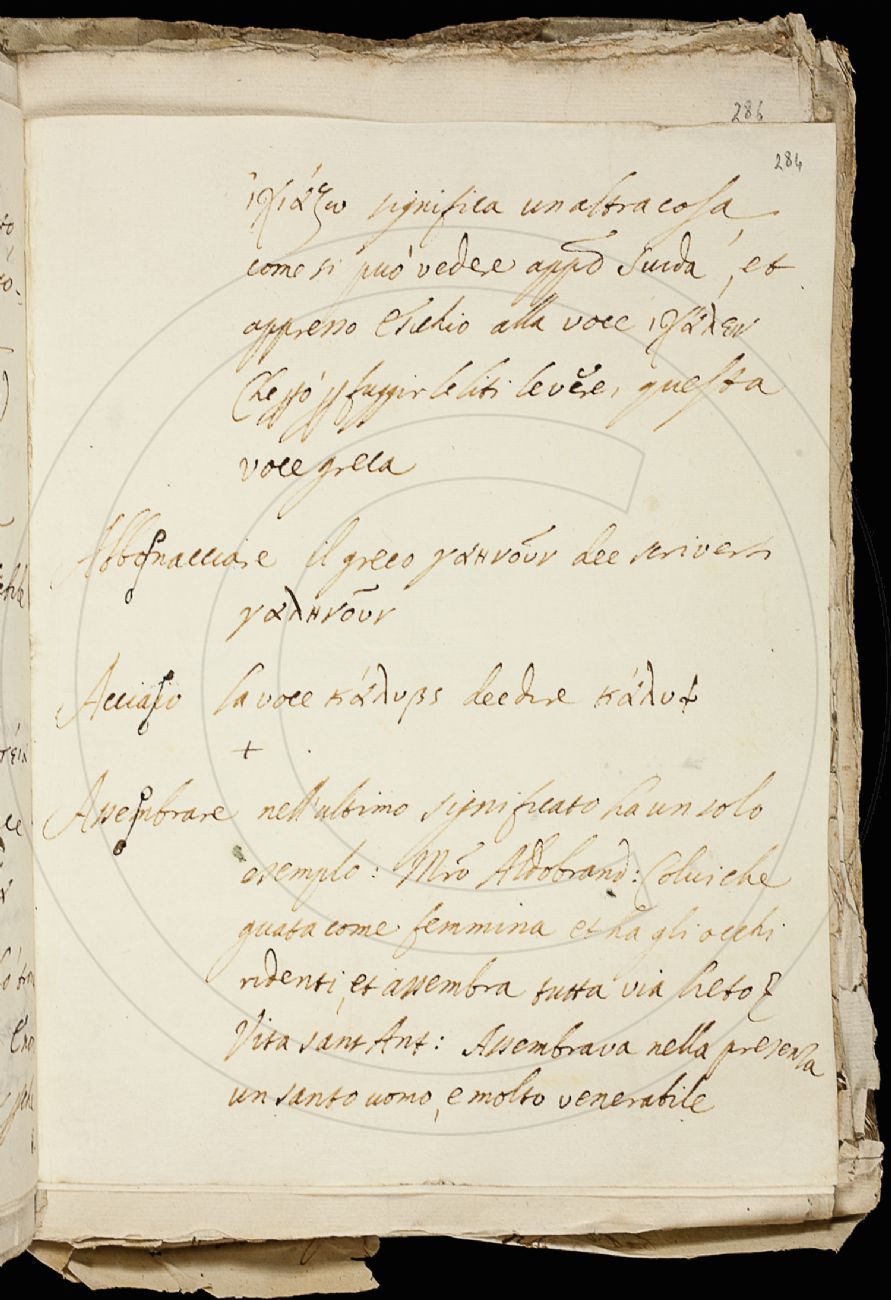 286
284
significa un altra cosa,
come si può vedere app.o Suida, et
appresso Esichio alla voce
Che p. fuggir le liti levere, questa
voce greca
Abbonacciare il greco γαηνοῦν dee scriversi
γαληνοῦν
Acciaio la voce κάλυβς dee dire κάλυψ
+
Assembrare nell'ultimo significato ha un solo
esemplo: Mro Aldobrand: Colui che
guata come femmina et ha gli occhi
ridenti, et assembra tutta via lieto
Vita sant Ant: Assembrava nella presenza
un santo uomo, e molto venerabile